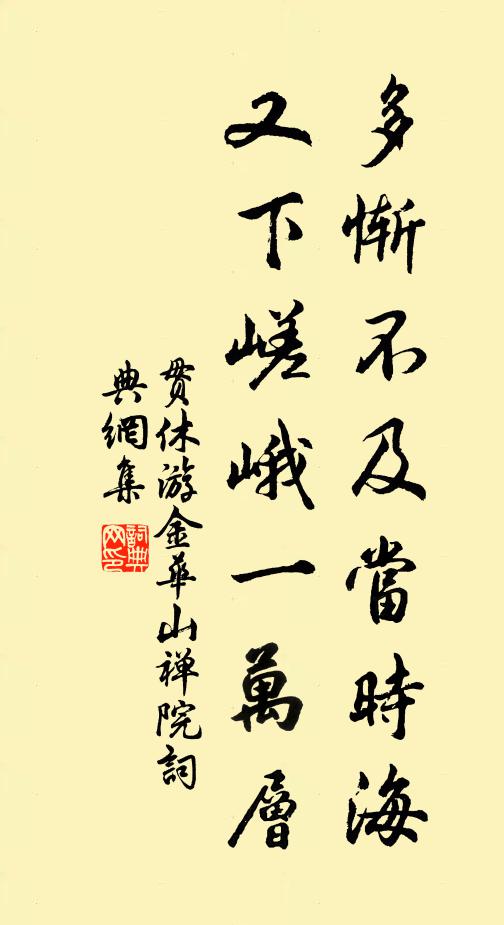 多慚不及當時海
又下嵯峨一萬層
貫休游金華山禅院詞
典網集
詞典
网印